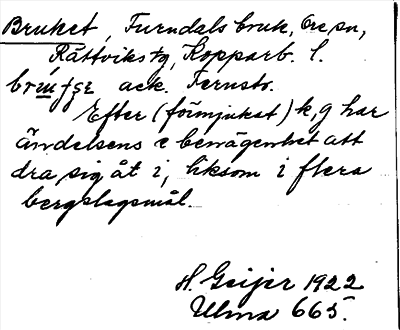 Bruket, Furudals bruk, Ore sn,
Rättviks tg, Kopparb. l.
ack. Fernstr.
Efter (förmjukat) k, g har
ändelsens e benägenhet att
dra sig åt i, liksom i flera
bergslagsmål.
H. Geijer 1922
Ulma 665.